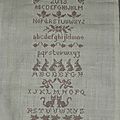 2013
ABCDEFGHIJKLM
NOPQRSTUVWXYZ
abcdefghijklmno
pqrstuvwxyz
ABCDEFGH
IJKLMNOPQ
RSTUVWXYZ